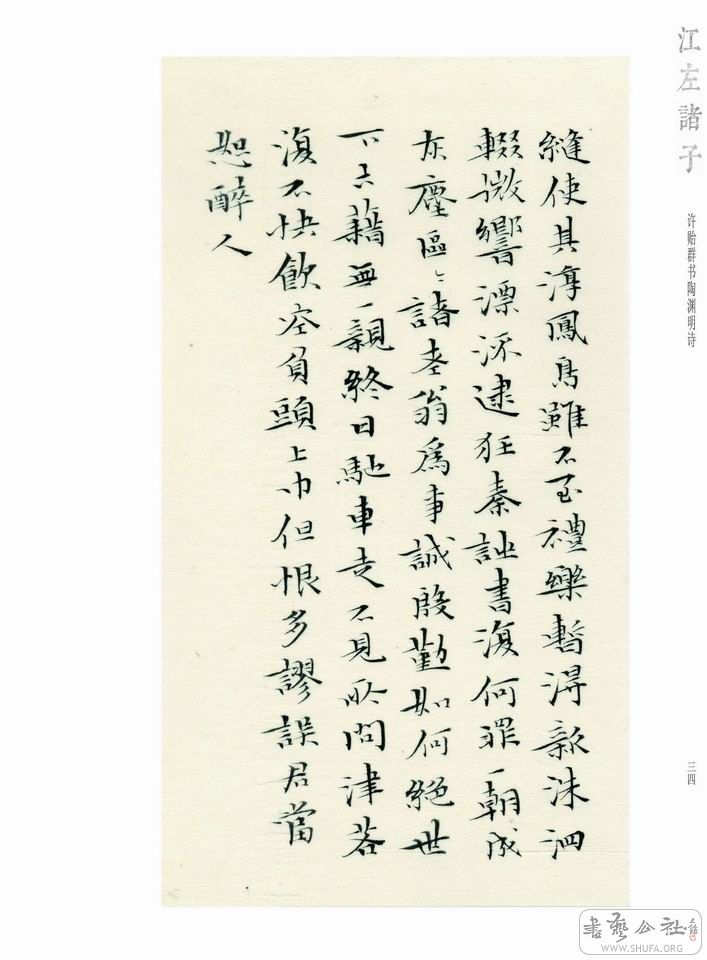 江左諸子
许贻群书陶渊明诗
三四
縫使其淳鳳鳥雖不至禮樂暫得新洙泗
輟微響漂流逮狂秦詩書復何罪一朝成
灰塵區ミ諸老翁為事誠殷勤如何絕世
下六籍無一親終日馳車走不見所問津若
復不快飲空負頭上巾但恨多謬誤君當
恕醉人
書藝公社
WWW.SHUFA.ORG